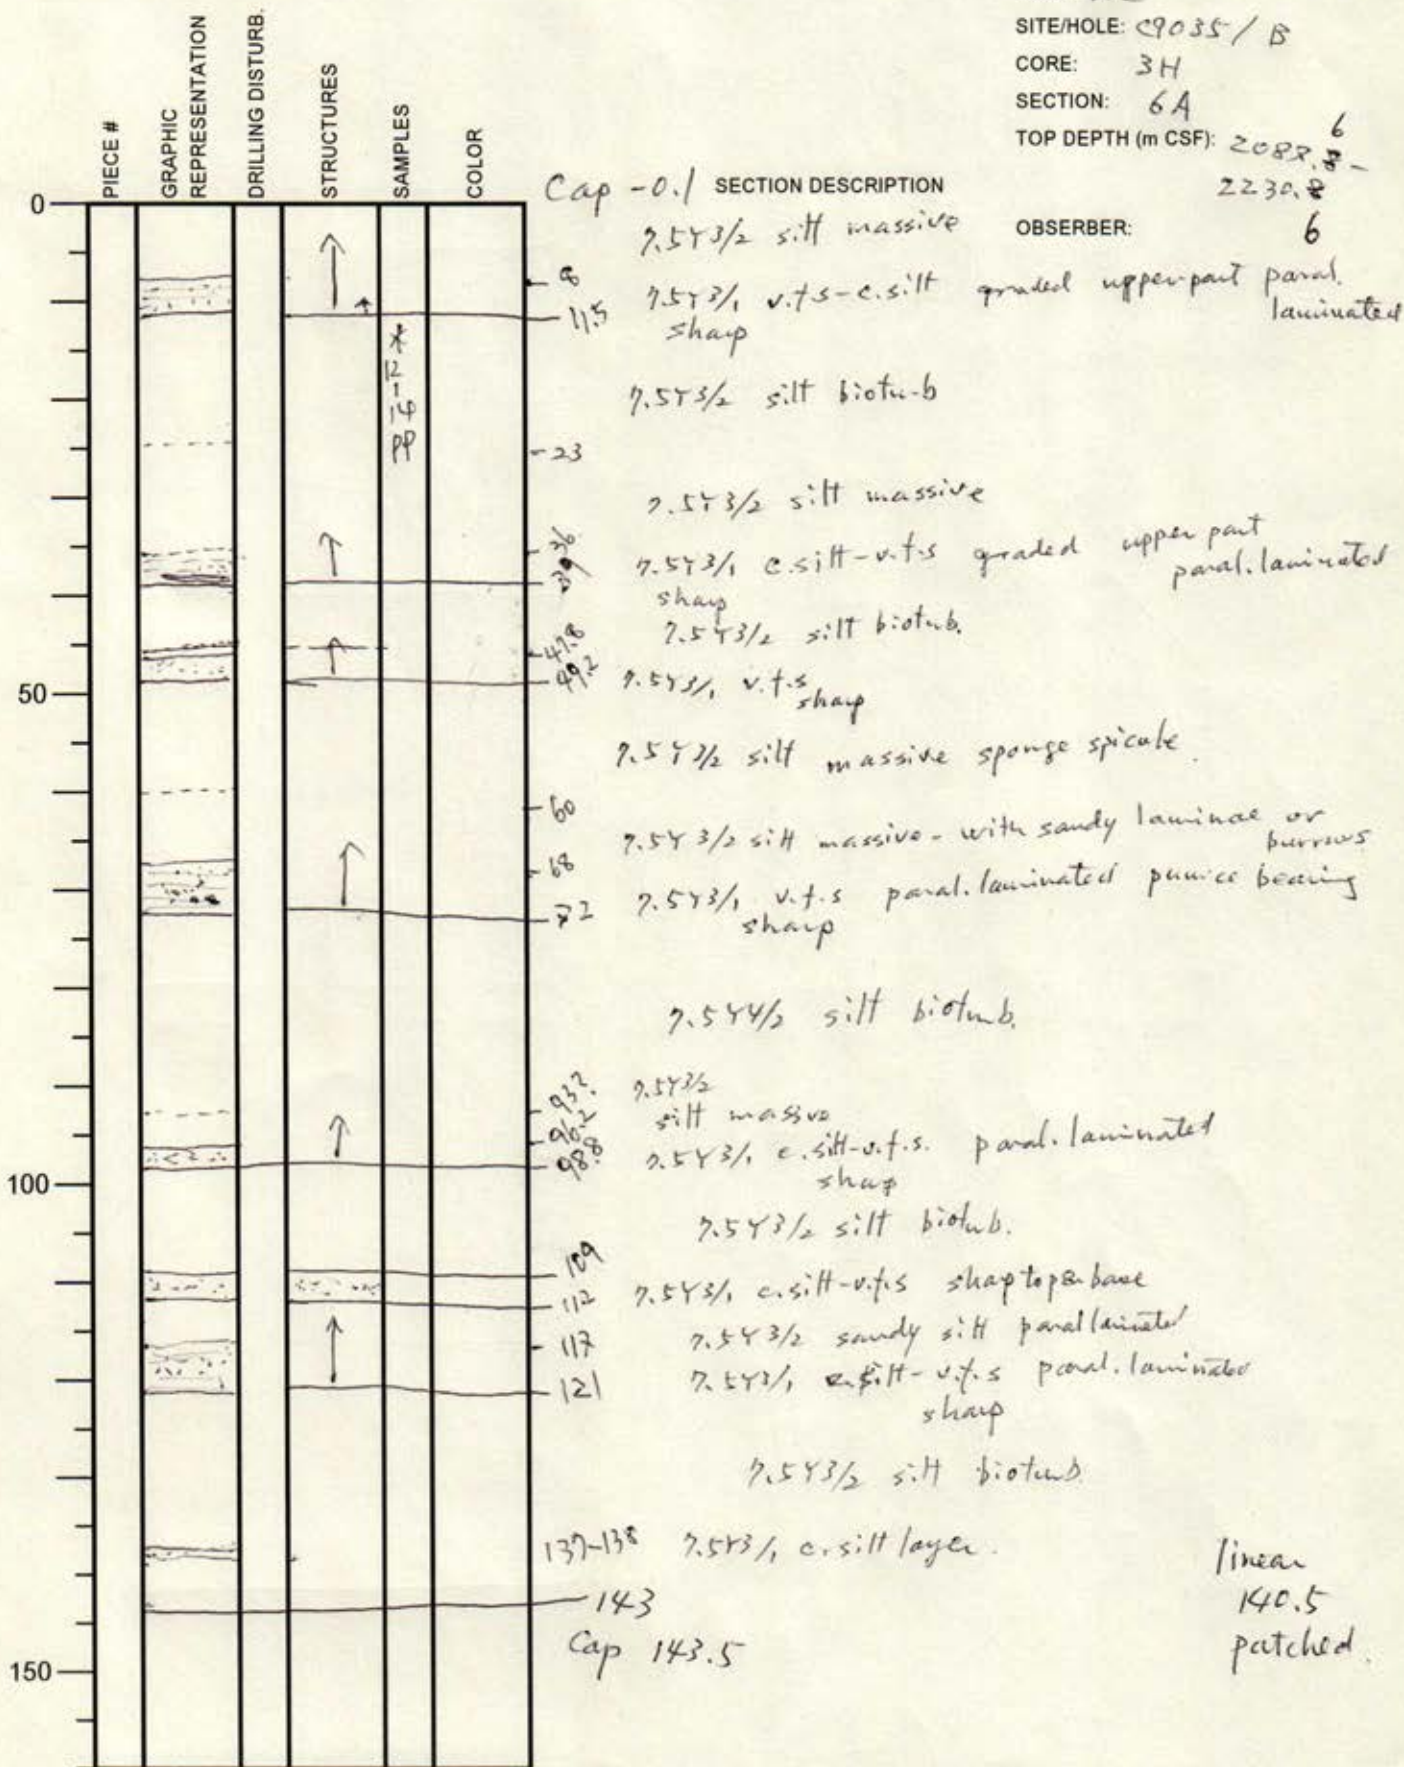 SITE/HOLE: C9035 / B
CORE: 3H
SECTION: 6A
TOP DEPTH (m CSF):
6
2230.
OBSERBER:
6
PIECE #
GRAPHIC REPRESENTATION
DRILLING DISTURB.
STRUCTURES
SAMPLES
COLOR
Cap -0.1 SECTION DESCRIPTION
0
7.5Y3/2 silt massive
8 7.5Y3/1 v.f.s-c.silt graded upper part paral.
laminated
11.5 sharp
*
12
-
14
PP
7.5Y3/2 silt bioturb
23
7.5Y3/2 silt massive
36 7.5Y3/1 c.silt-v.f.s graded upper part
paral.laminated
39 sharp
7.5Y3/2 silt bioturb.
47.8
49.2 7.5Y3/1 v.f.s
sharp
50
7.5Y3/2 silt massive sponge spicule.
60
7.5Y 3/2 silt massive - with sandy laminae or
burrows
68
7.5Y3/1 v.f.s paral.laminated pumice bearing
72 sharp
7.5Y4/2 silt bioturb.
93?. 7.5Y3/2
silt massive
96.2
98.8 7.5Y3/1 c.silt-v.f.s. paral.laminated
sharp
100
7.5Y3/2 silt bioturb.
109
7.5Y3/1 c.silt-v.f.s sharp top&base
112
7.5Y3/2 sandy silt paral laminated
117
7.5Y3/1 c.silt-v.f.s paral.laminated
121
sharp
7.5Y3/2 silt bioturb
137-138 7.5Y3/1 c.silt layer.
linear
143
140.5
Cap 143.5
patched.
150